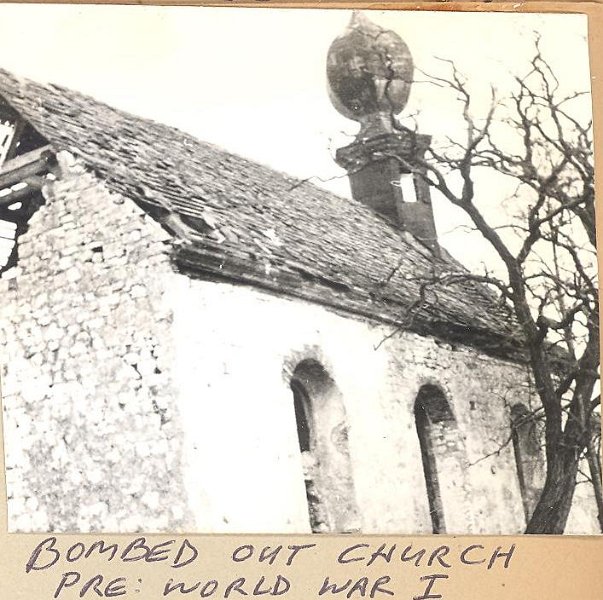 BOMBED OUT CHURCH
PRE: WORLD WAR I